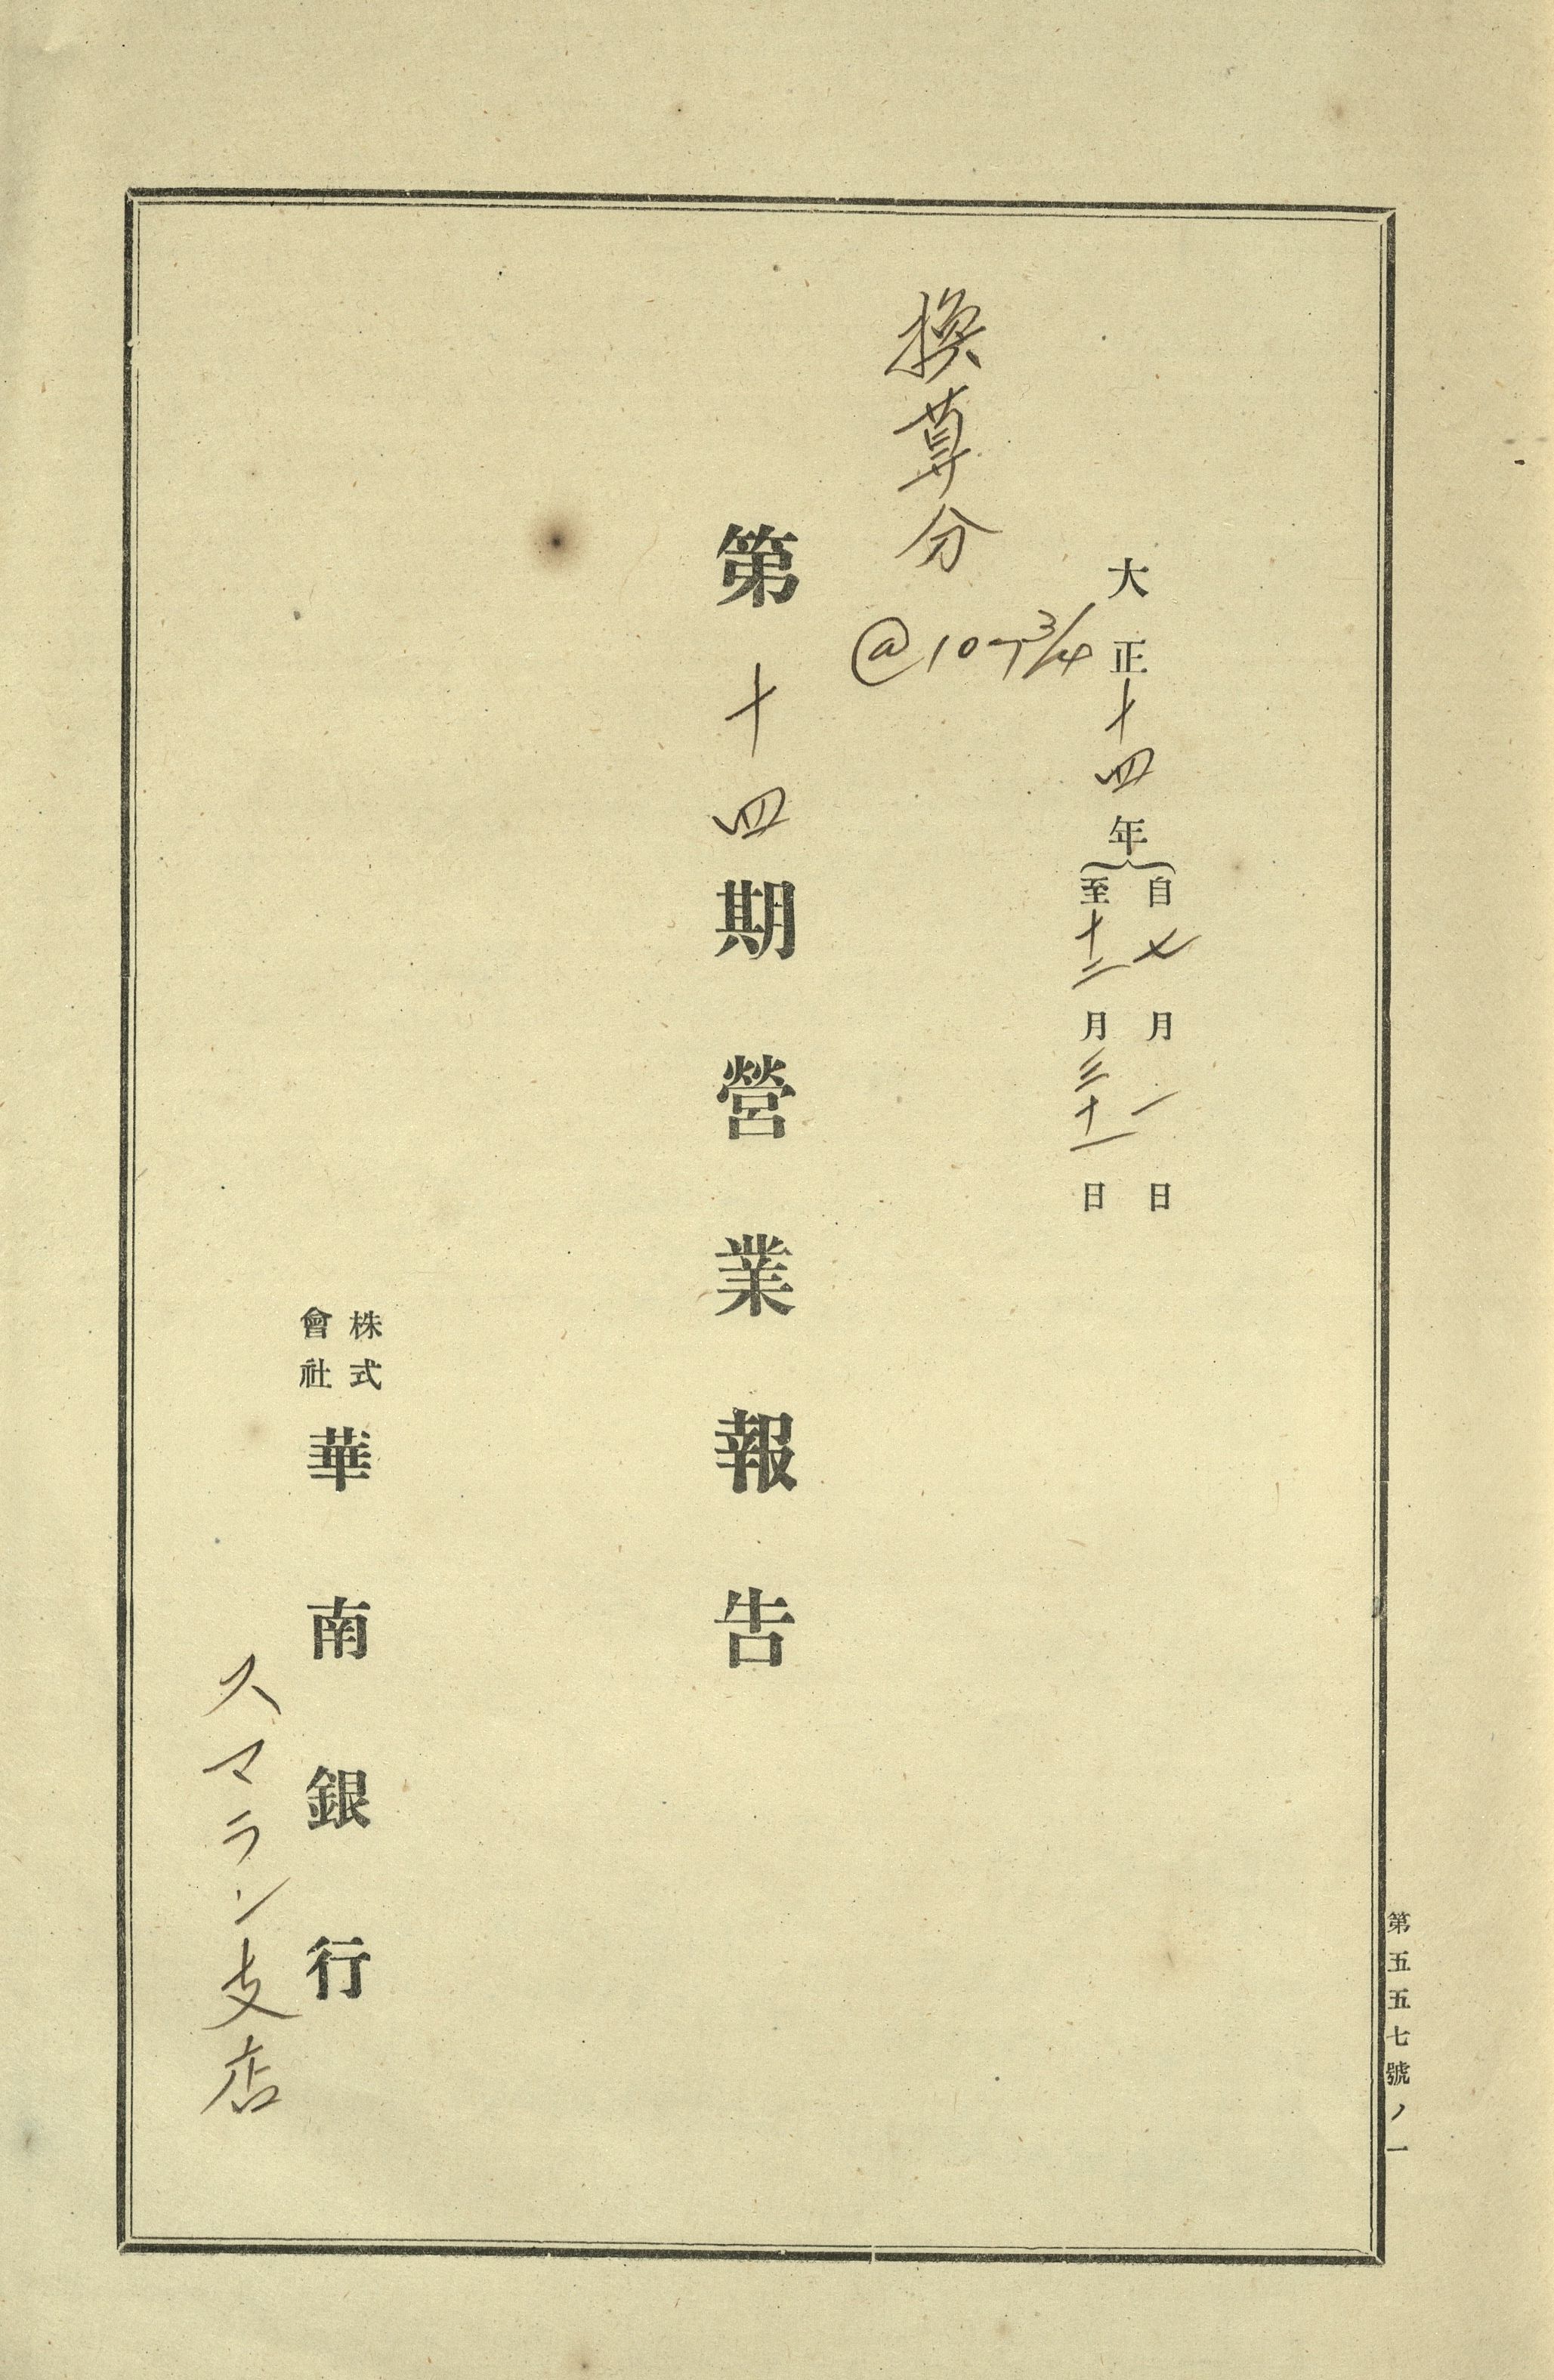 第五五七號ノ一
大正十四年
自七月一日
至十二月三十一日
換算分
@107 3/4
第十四期營業報告
株式
會社
華南銀行
スマラン支店